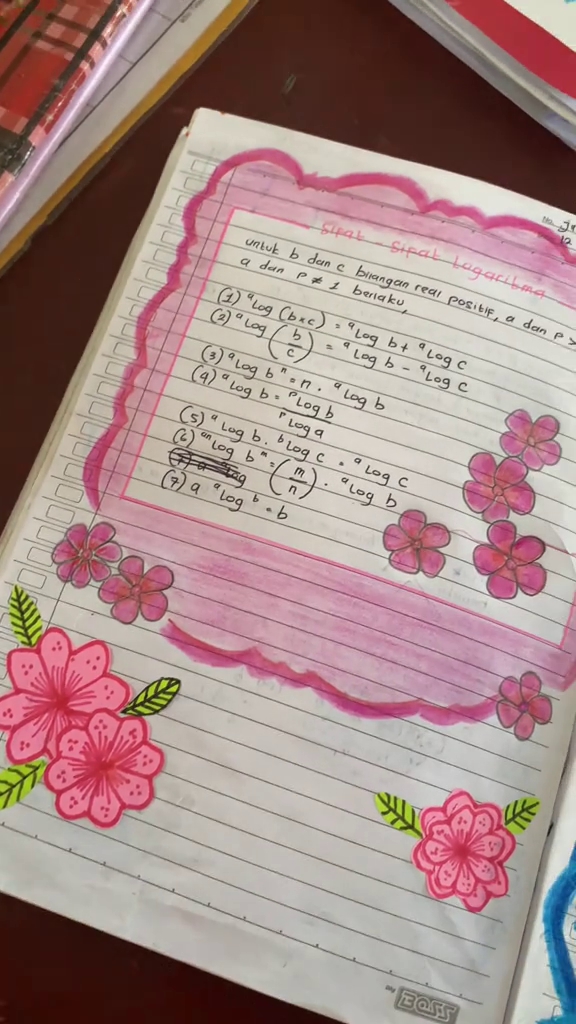 Sifat - Sifat Logaritma
untuk b dan c bilangan real positif, a dan p >
a dan p ≠ 1 berlaku,
(1) ᵃLog (b×c) = ᵃLog b + ᵃLog c
(2) ᵃLog (b/c) = ᵃLog b - ᵃLog c
(3) ᵃLog bⁿ = n . ᵃLog b
(4) ᵃLog b = ᵖLog b / ᵖLog a
(5) ᵃLog b . ᵇLog c = ᵃLog c
(6) ᵃⁿLog bᵐ = (m/n) . ᵃLog b
(7) a ᵃLog b = b
No.
12
my BOSS